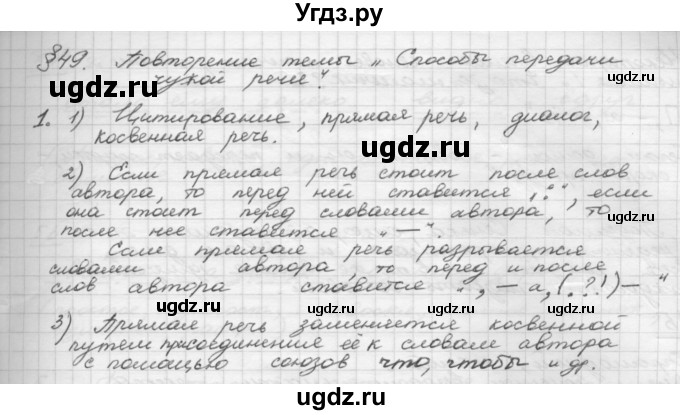 Угдз.ру
§49. Повторение темы „Способы передачи
чужой речи".
ugdz.ru
ugdz.ru
1. 1) Цитирование, прямая речь, диалог,
косвенная речь.
ugdz.ru
2) Если прямая речь стоит после слов
автора, то перед ней ставится „:", если
она стоит перед словами автора, то
после нее ставится „—".
Если прямая речь разрывается
словами автора, то перед и после
слов автора ставится „, – а, (.?!) – "
ugdz.ru
ugdz.ru
3) Прямая речь заменяется косвенной
путем присоединения её к словам автора
с помощью союзов что, чтобы и др.
ugdz.ru
ugdz.ru